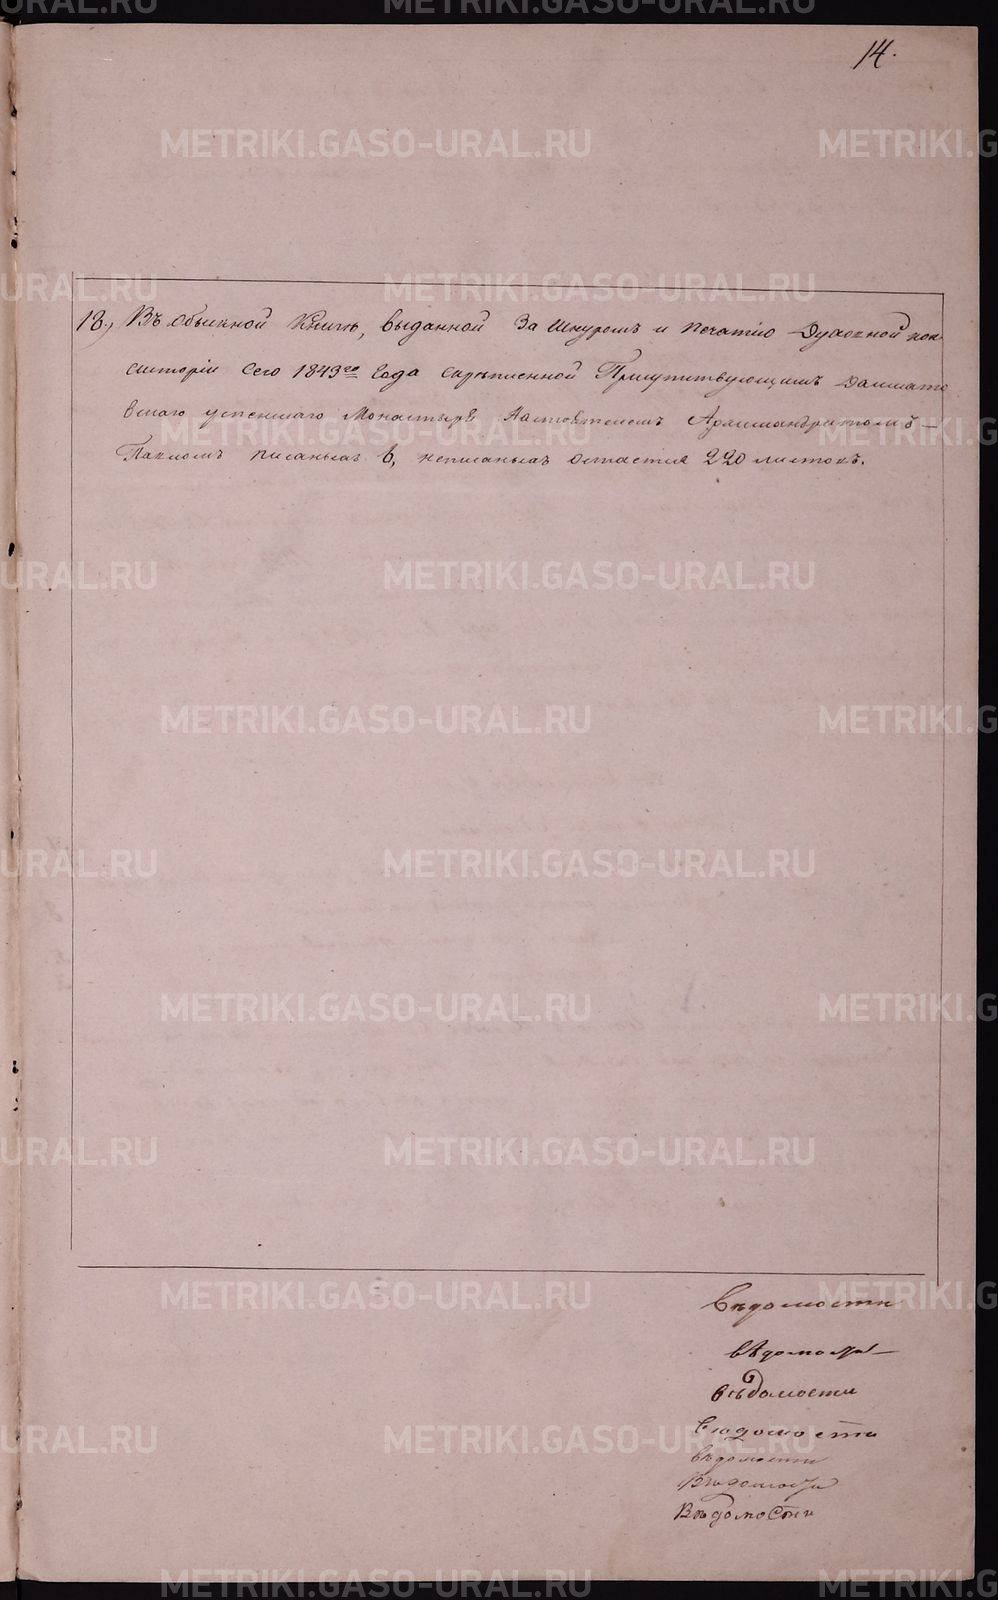 14.
18., Въ обыскной книгѣ, выданной за шнуромъ и печатію Духовной кон-
систоріи сего 1843го года скрѣпленной Присутствующимъ Далмато
вскаго успенскаго Монастыря Настоятелемъ Архимандритомъ –
Павломъ писаныхъ 6, неписаныхъ остается 220 листовъ.
вѣдомости
вѣдомости
вѣдомости
вѣдомости
вѣдомости
Вѣдомости
Вѣдомости
METRIKI.GASO-URAL.RU